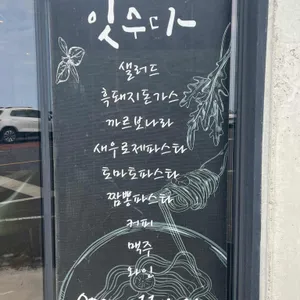 잇수다
샐러드
흑돼지돈가스
까르보나라
새우로제파스타
토마토파스타
짬뽕파스타
커피
맥주
와인